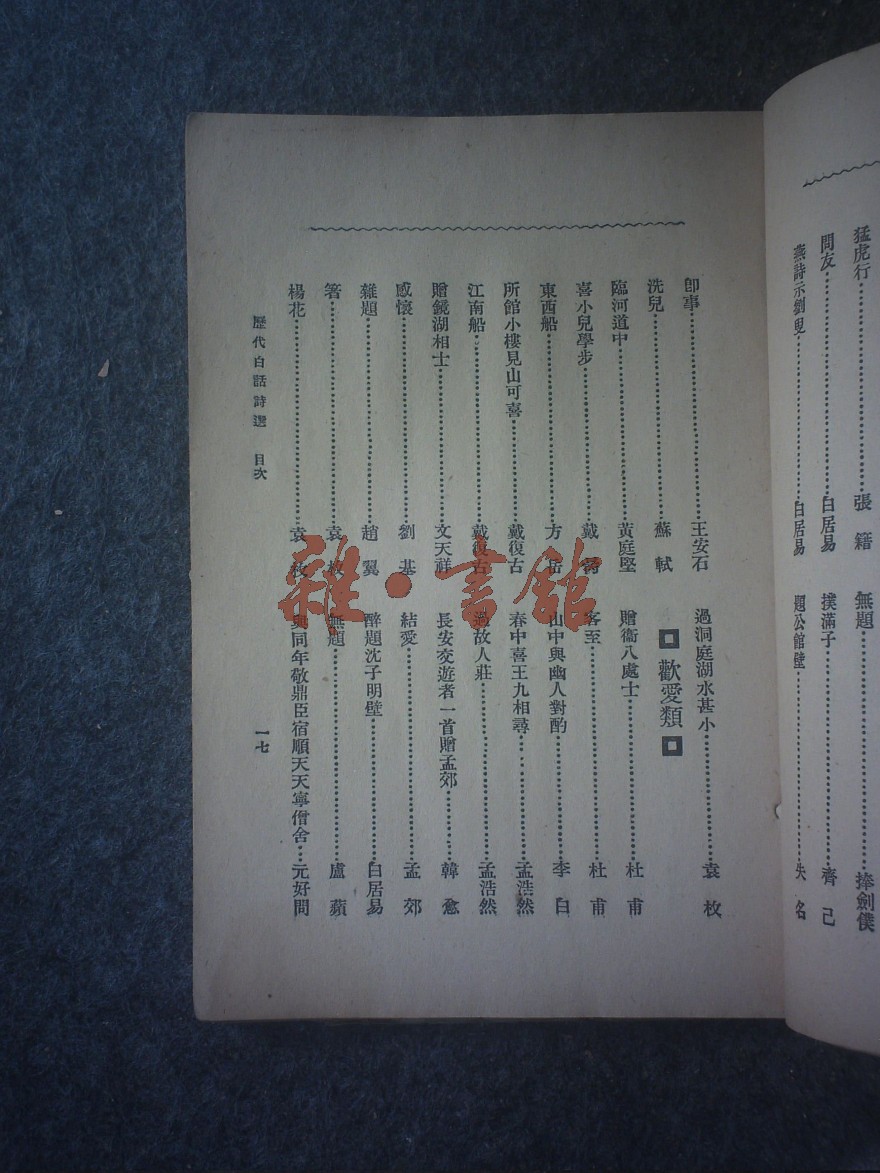 猛虎行……張籍
問友……白居易
燕詩示劉叟……白居易
無題……捧劍僕
撲滿子……齊己
題公館壁……失名
即事……王安石
洗兒……蘇軾
臨河道中……黃庭堅
喜小兒學步……戴
東西船……方岳
所館小樓見山可喜……戴復古
江南船……戴復古
贈鏡湖相士……文天祥
感懷……劉基
雜題……趙翼
箸……袁枚
楊花……袁枚
過洞庭湖水甚小……袁枚
歡愛類
贈衞八處士……杜甫
客至……杜甫
山中與幽人對酌……李白
春中喜王九相尋……孟浩然
過故人莊……孟浩然
長安交遊者一首贈孟郊……韓愈
結愛……孟郊
醉題沈子明壁……白居易
無題……盧蘋
與同年敬鼎臣宿順天天寧僧舍…元好問
歷代白話詩選 目次
一七
雜·書館